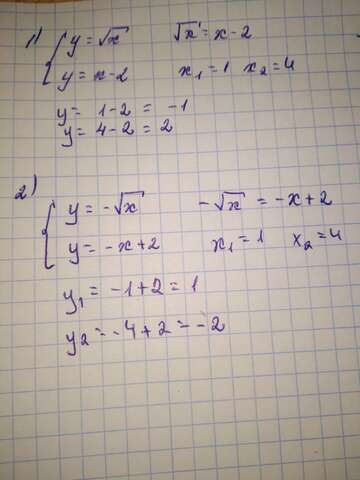 1) { y = √x    √x = x - 2
y = x - 2    x₁ = 1  x₂ = 4
y = 1 - 2 = -1
y = 4 - 2 = 2
2) { y = -√x    -√x = -x + 2
y = -x + 2    x₁ = 1  x₂ = 4
y₁ = -1 + 2 = 1
y₂ = -4 + 2 = -2